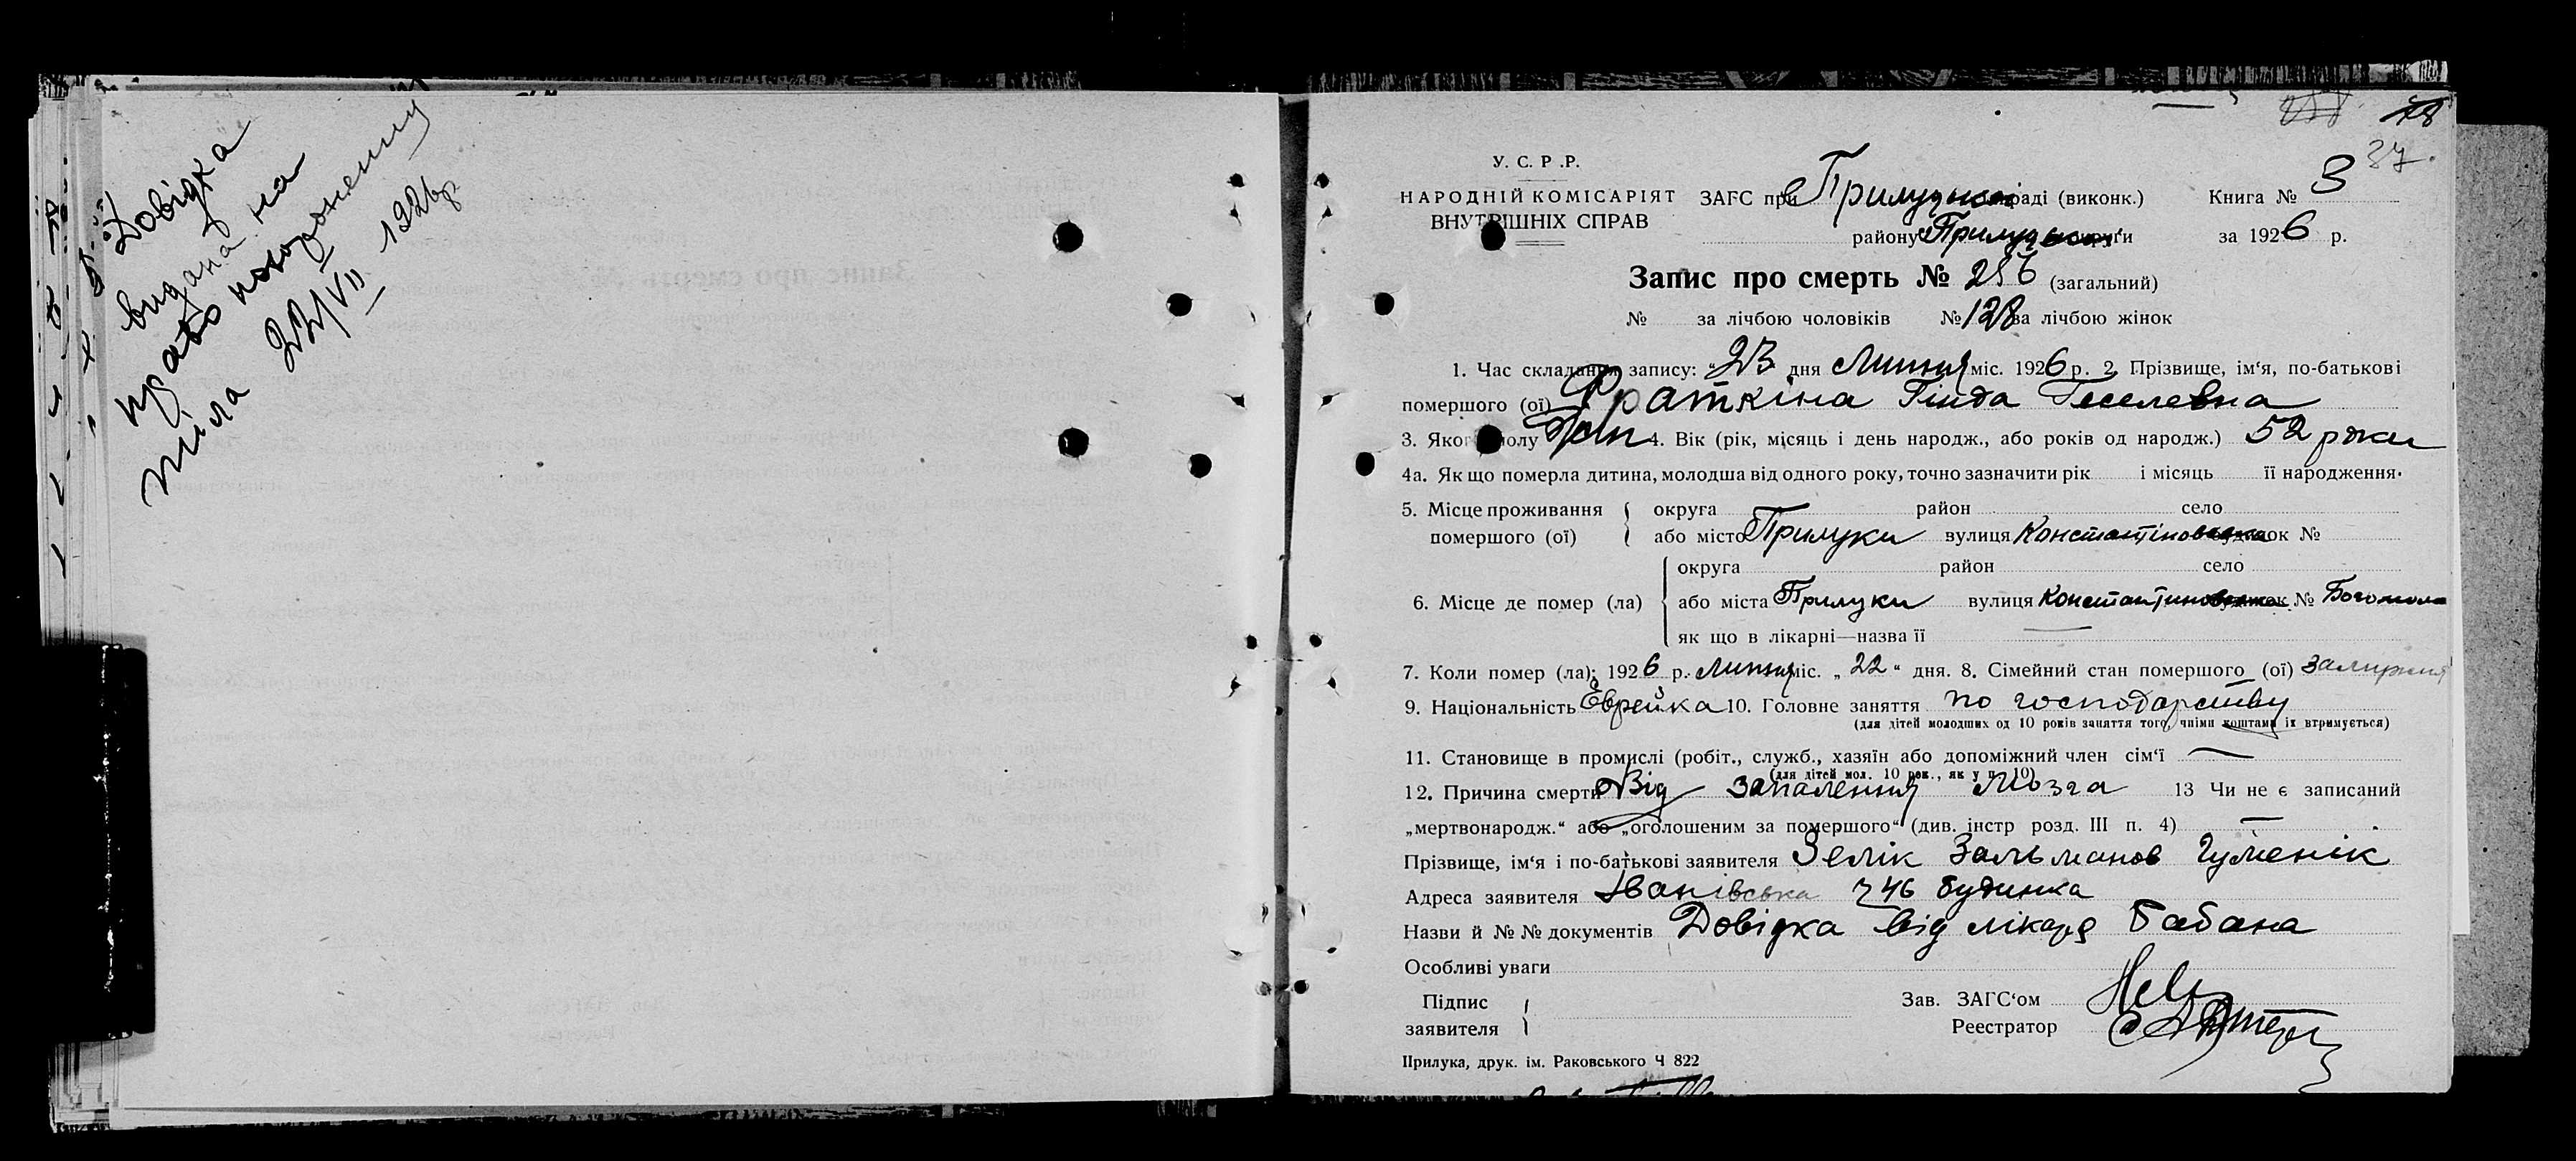 Довідка
видана на
право похоронення
тіла 22/VII 1926р
78
37.
У. С. Р .Р.
НАРОДНІЙ КОМІСАРІЯТ
ВНУТРІШНІХ СПРАВ
ЗАГС при Прилуцькій раді (виконк.) Книга № 3
району Прилуцької округи за 1926 р.
Запис про смерть № 256 (загальний)
№ за лічбою чоловіків № 128 за лічбою жінок
1. Час складання запису: „23 дня Липня міс. 1926 р. 2. Прізвище, ім‘я, по-батькові
помершого (ої) Фраткіна Гінда Геселевна
3. Якого полу Жін 4. Вік (рік, місяць і день народж., або років од народж.) 52 роки
4а. Як що померла дитина, молодша від одного року, точно зазначити рік і місяць її народження.
5. Місце проживання помершого (ої) округа район село
або місто Прилуки вулиця Константіновська будинок №
6. Місце де помер (ла) округа район село
або міста Прилуки вулиця Константиновська будинок № Богомола
як що в лікарні—назва її —
7. Коли помер (ла): 1926 р. Липня міс. „22“ дня. 8. Сімейний стан помершого (ої) Замужня
9. Національність Єврейка 10. Головне заняття по господарству
(для дітей молодших од 10 років заняття того, чиїми коштами їх втримується)
11. Становище в промислі (робіт., служб., хазяїн або допоміжний член сім‘ї —
(для дітей мол. 10 рок., як у п. 10)
12. Причина смерти Від запалення Мозга 13 Чи не є записаний
„мертвонародж.“ або „оголошеним за помершого“ (див. інстр розд. III п. 4) —
Прізвище, ім‘я і по-батькові заявителя Зелік Зальманов Гуменік
Адреса заявителя Іванівська 46 будинка
Назви й №№ документів Довідка від лікаря Бабана
Особливі уваги
Підпис заявителя
Зав. ЗАГС‘ом
Реестратор
Прилука, друк. ім. Раковського Ч 822